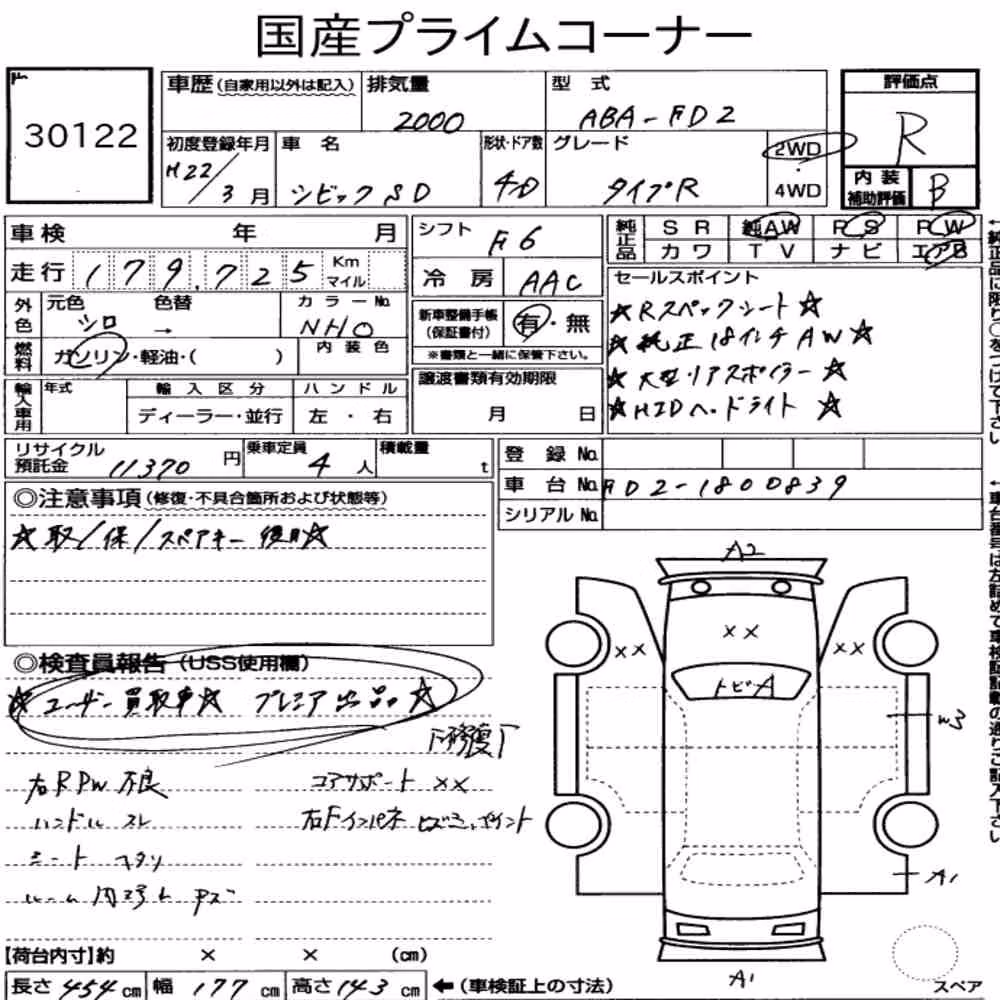 国産プライムコーナー
30122
車歴 (自家用以外は記入)
排気量 2000
型式 ABA-FD2
評価点 R
初度登録年月 H22/3月
車名 シビックSD
形状・ドア数 4D
グレード タイプR
2WD
4WD
内装補助評価 B
車検 年 月
シフト F6
純正品 SR 純AW PS PW
カワ TV ナビ エアB
走行 179,725 Km マイル
冷房 AAC
セールスポイント
★Rスペックシート★
★純正18インチAW★
★大型リアスポイラー★
★HIDヘッドライト★
外色 元色 シロ 色替 → カラーNo. NH0
新車整備手帳(保証書付) 有・無
※書類と一緒に保管下さい。
燃料 ガソリン・軽油・( ) 内装色
譲渡書類有効期限
月 日
輸入車用 年式 輸入区分 ハンドル
ディーラー・並行 左・右
リサイクル預託金 11370 円
乗車定員 4 人
積載量 t
登録No.
車台No. FD2-1800839
シリアルNo.
◎注意事項 (修復・不具合箇所および状態等)
★取/保/スペアキー後日★
◎検査員報告 (USS使用欄)
★ユーザー買取車★ プレミア出品★
修復
右RPW不良
コアサポートXX
ハンドルスレ
シートヘタリ
A2
XX
XX
XX
トビA
W3
A1
A1
【荷台内寸】約 × × (cm)
長さ 454 cm 幅 177 cm 高さ 143 cm ←(車検証上の寸法)
スペア
←純正品に限り○をつけて下さい
←車台番号は左詰めで車検証記載の通りご記入下さい